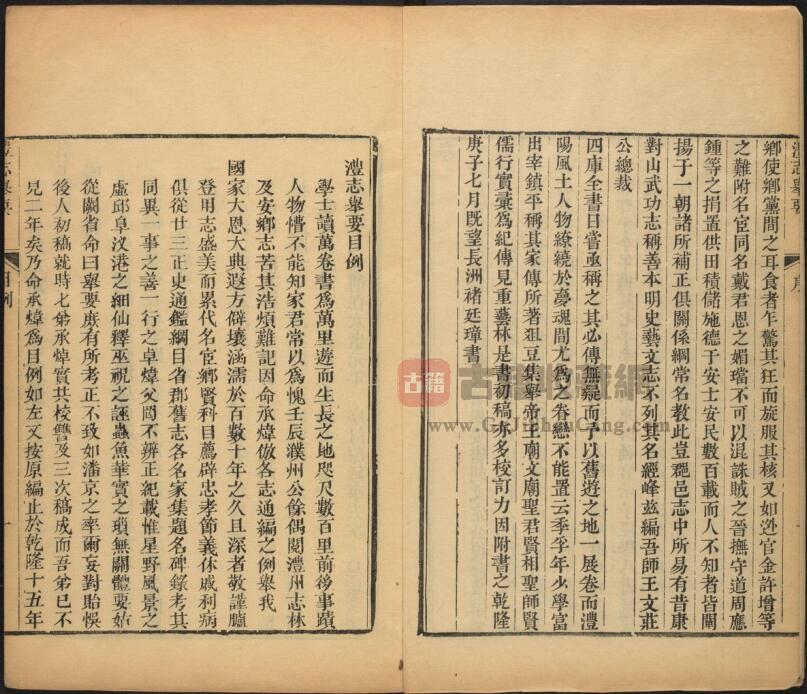 澧志舉要
序
鄉使鄉黨間之耳食者乍驚其狂而旋服其核又如迯官金許增等
之難附名宦同名戴君恩之媚璫不可以混誅賊之晉撫守道周應
鍾等之捐置供田積儲施德于安士安民數百載而人不知者皆闡
揚于一朝諸所補正俱關係綱常名敎此豈郡邑志中所易有昔康
對山武功志稱善本明史藝文志不列其名經峰兹編吾師王文莊
公總裁
四庫全書日嘗亟稱之其必傳無疑而予以舊遊之地一展卷而澧
陽風土人物繚繞於夢魂間尤爲之眷戀不能置云季孚年少學富
出宰鎮平稱其家傳所著爼豆集舉帝王廟文廟聖君賢相聖師賢
儒行實彙爲紀傳見重藝林是書初稿亦多校訂力因附書之乾隆
庚子七月既望長洲褚廷璋書
澧志舉要目例
學士讀萬卷書爲萬里遊而生長之地咫尺數百里前後事蹟
人物懵不能知家君常以爲愧壬辰濮州公餘偶閱澧州志林
及安鄉志苦其浩煩難記因命承煒倣各志通編之例舉我
國家大恩大典遐方僻壤涵濡於百數十年之久且深者敬謹臚
登用志盛美而累代名宦鄉賢科目薦辟忠孝節義休戚利病
俱從廿三正史通鑑綱目省郡舊志各名家集題名碑錄考其
同異一事之善一行之卓煒父閟不辨正紀載惟星野風景之
虛邱阜汊港之細仙釋巫覡之誣蟲魚華實之瑣無關體要姑
從闕省命曰舉要庻有所考正不致如潘京之率爾妄對貽悞
後人初稿就時七弟承焯實共校讐及三次稿成而吾弟已不
見二年矣乃命承煒爲目例如左又按原編止於乾隆十五年
志舉要
目例
一
古籍
www.GujiShuCang.com